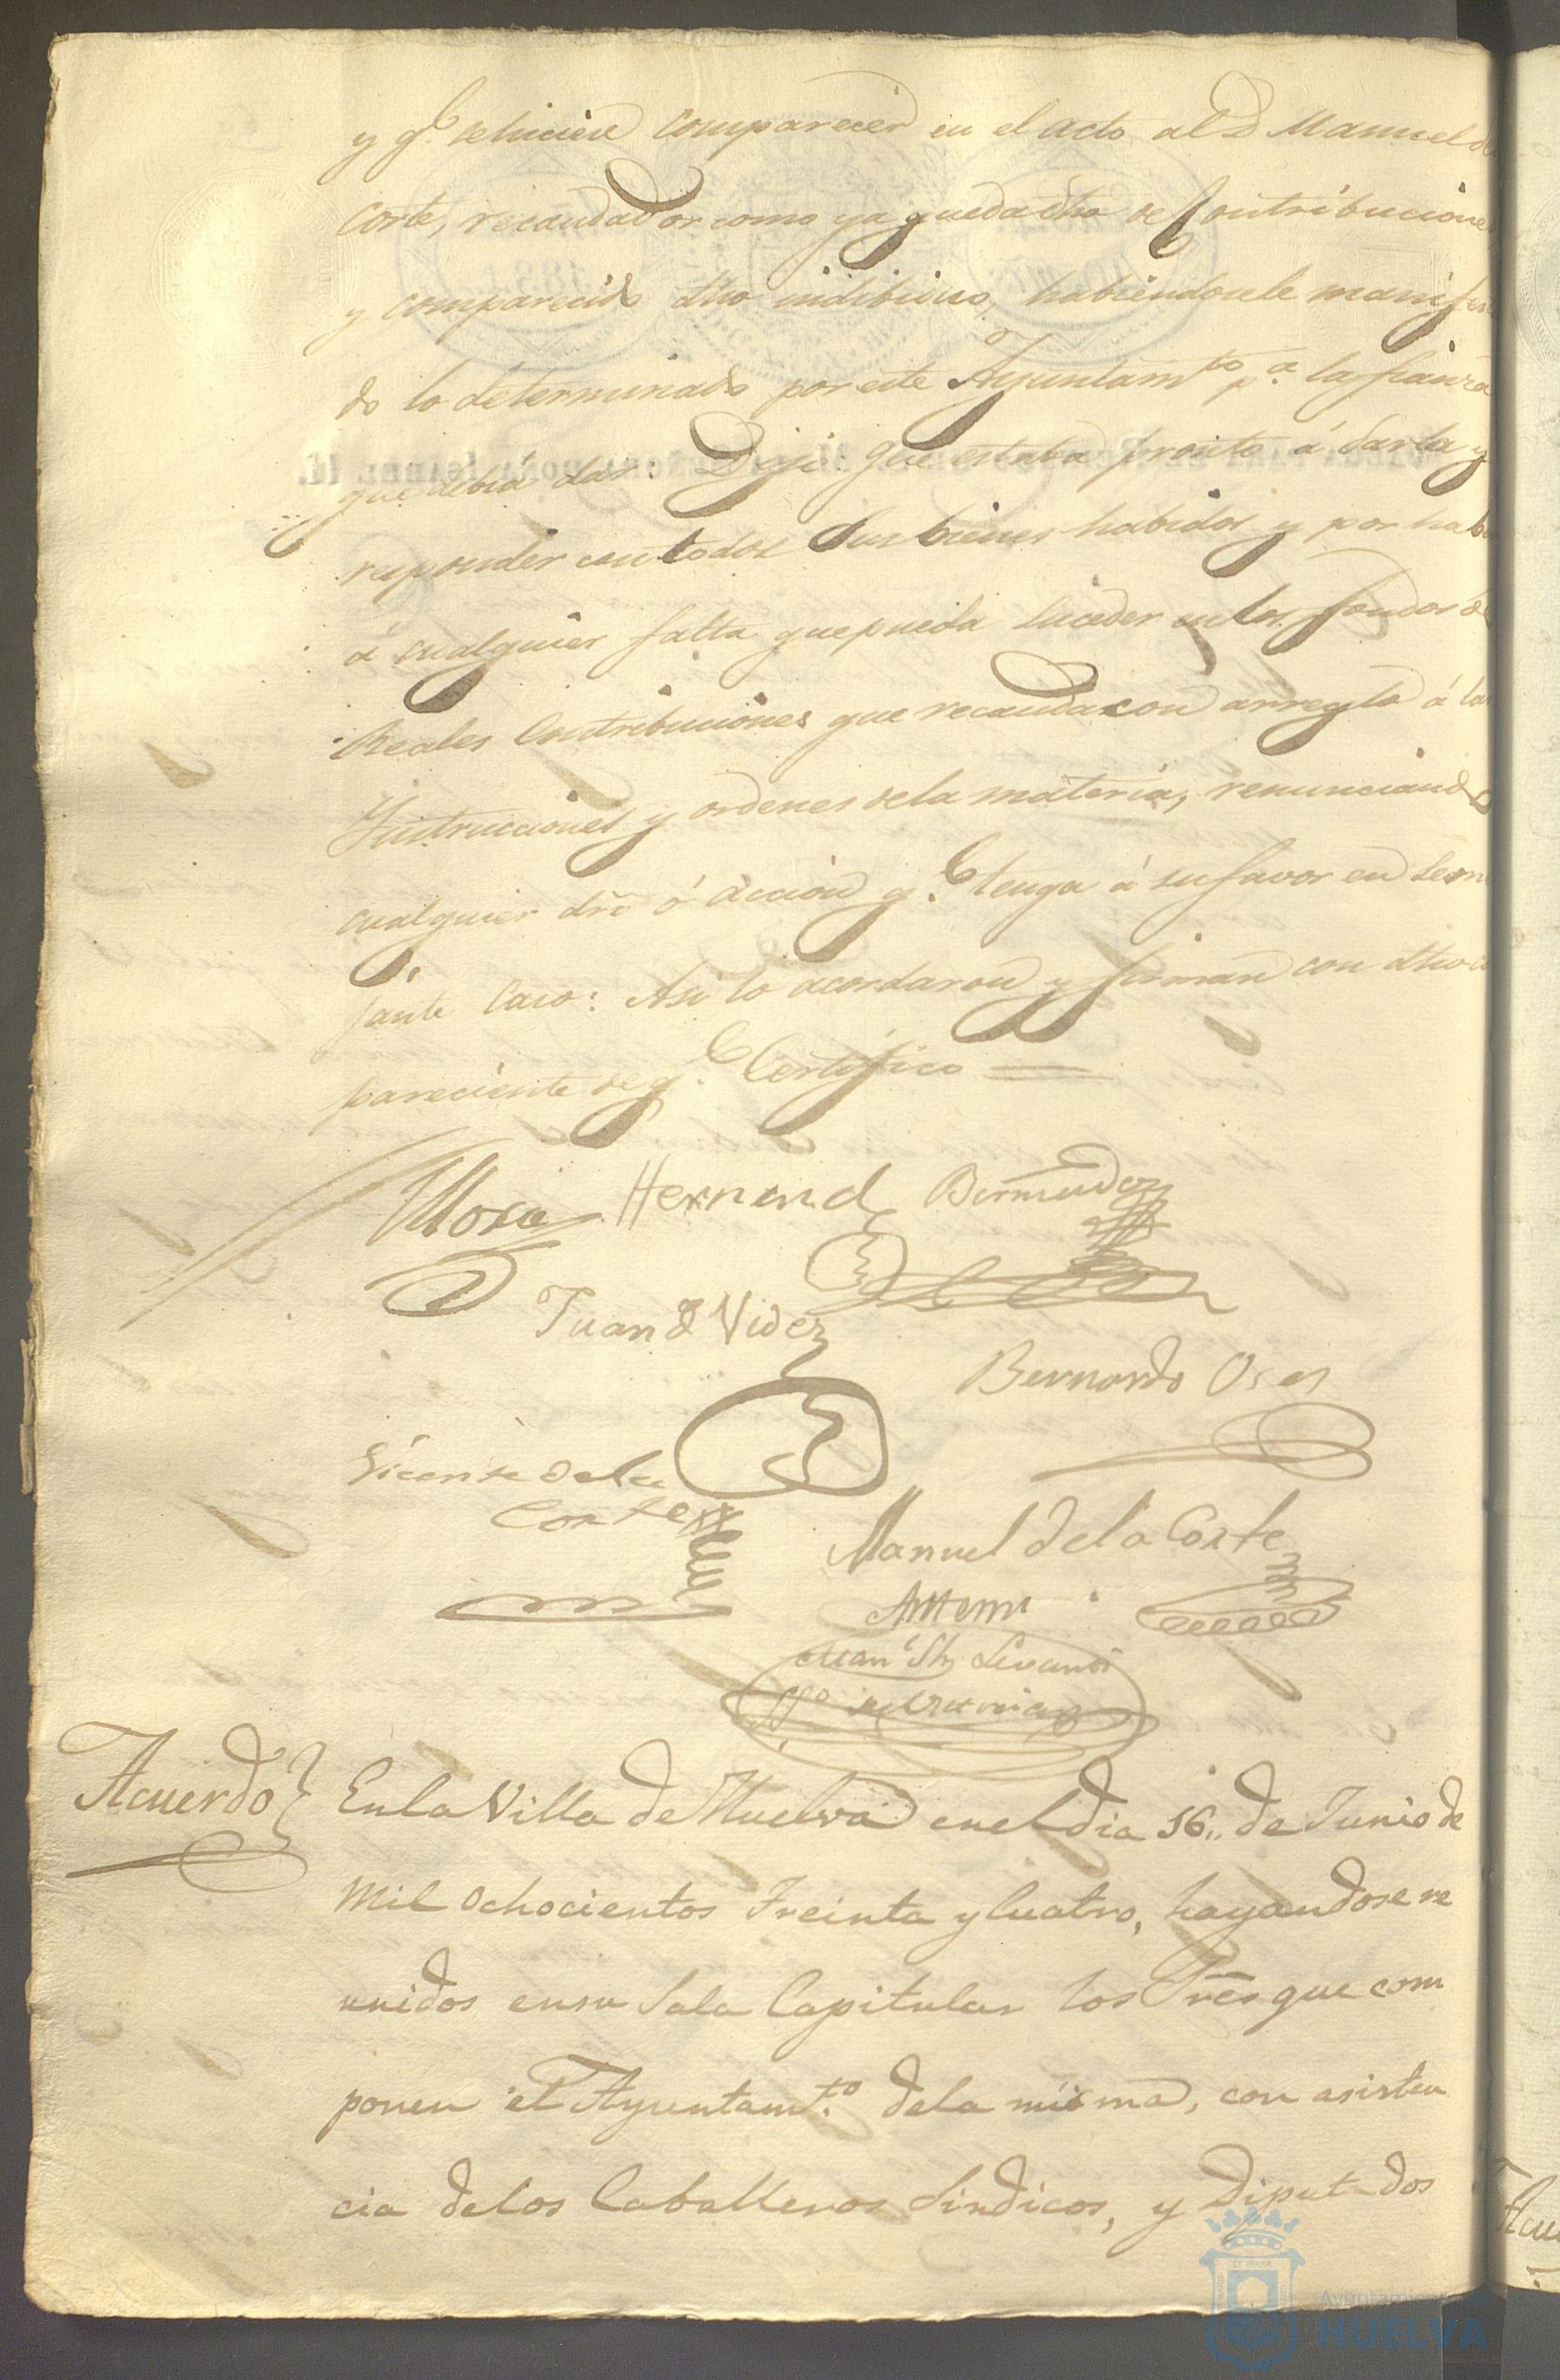 y q.e se hiciese comparecer en el acto al D. Manuel de
Corte, recaudador como ya queda dho de Contribuciones
y comparecido dho individuo, habiendosele manifesta
do lo determinado por este Ayuntam.to p.a la fianza
que debia dar: Dijo: Que estaba pronto á darla y
responder con todos sus bienes habidos y por habe
á cualquier falta que pueda suceder en los fondos de
Reales Contribuciones que recauda con arreglo á las
Instrucciones y ordenes dela materia, renunciando
cualquier dro ó accion q.e tenga á su favor en seme
jante caso: Asi lo acordaron y firman con dho co
pareciente de q.e Certifico =
Mora Hernand.z Bermudez
Juan de Videz
Bernardo Oses
Vicente dela
Corte
Manuel dela Corte
Antemi
Acuerdo
En la Villa de Huelva en el dia 16,, de Junio de
mil ochocientos treinta y Cuatro, hayandose re
unidos en su Sala Capitular los Sres que com
ponen el Ayuntam.to dela misma, con asisten
cia delos Caballeros Sindicos, y Diputados
Acu
Ayuntamiento
HUELVA